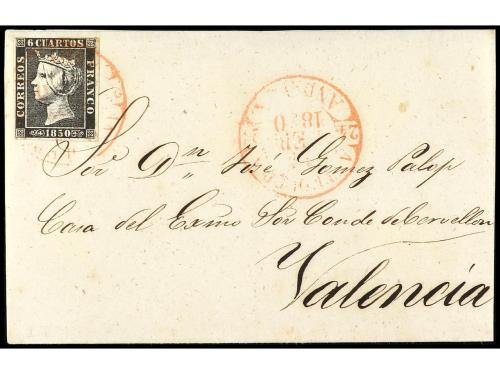 6 CUARTOS
CORREOS
FRANCO
1850
Sor. Dn. José Gomez Palop
Casa del Exmo Sor Conde de Cervellon
Valencia